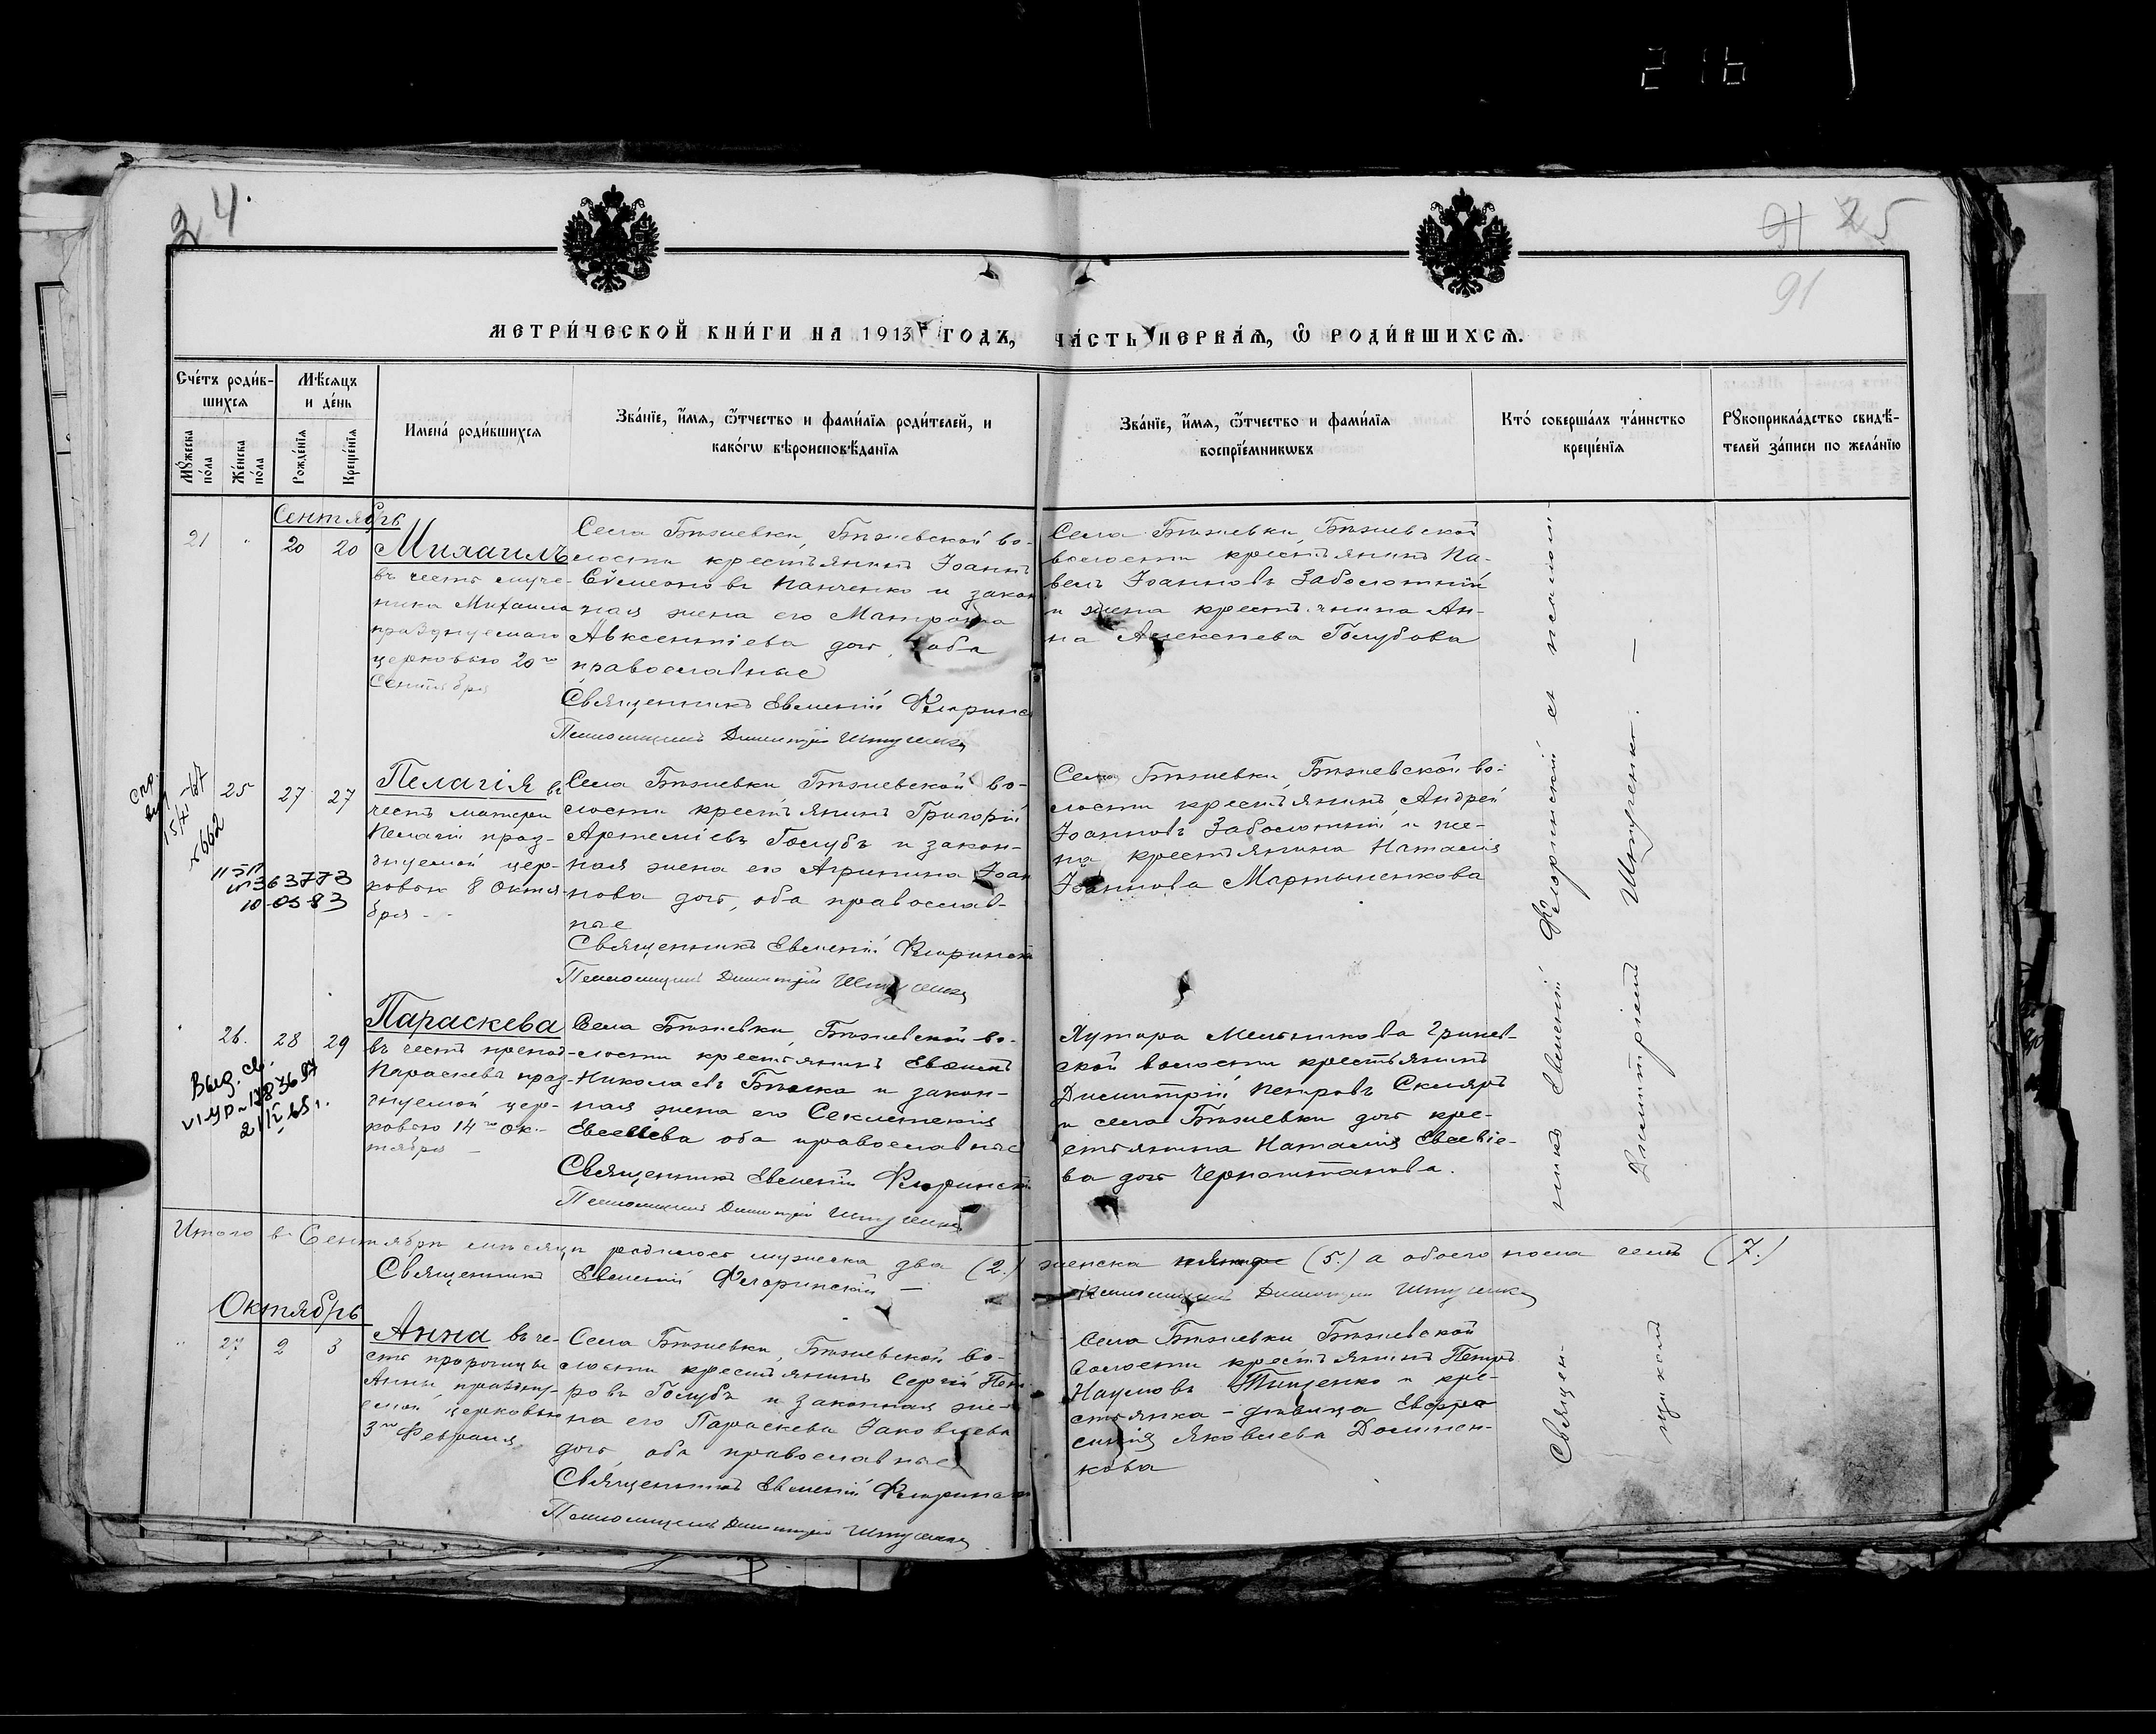 216
24.
91 25
91
МЕТРИ́ЧЕСКОЙ КНИ́ГИ НА 1913 ГОДЪ, ЧА́СТЬ ПЕРВАЯ, Ѡ РОДИ́ВШИХСЯ.
Сче́тъ роди́в-
шихся
Мѣсяцъ
и де́нь
Мужеска по́ла
Же́нска по́ла
Рожде́нїя
Креще́нїя
Имена́ роди́вшихся
Зва́нїе, и́мя, ѻ́тчество и фами́лїя роди́телей, и
како́гѡ вѣроисповѣданїя
Зва́нїе, и́мя, ѻ́тчество и фами́лїя
воспрїе́мникѡвъ
Кто́ соверша́лъ та́инство
креще́нїя
Рукоприкла́дство свидѣ-
телей за́писи по жела́нїю
Сентябрь
21 " 20 20
Михаилъ
въ честь муче-
ника Михаила
празднуемаго
церковью 20го
Сентября
Села Бѣзиевки, Бѣзиевской во-
лости крестьянинъ Іоаннъ
Сѵмеоновъ Панченко и закон
ная жена его Матрона
Авксентіева доч., оба
православные
Священникъ Евмений Флоринск
Псаломщикъ Димитрій Штученко
Села Бѣзиевки, Бѣзиевской
волости крестьянинъ Па-
велъ Іоанновъ Заболотный
и жена крестьянина Ан-
на Алексеева Голубова
25 27 27
Пелагія въ
честь матери
Пелагіи праз-
днуемой цер-
ковью 8 Октя-
бря
Села Бѣзиевки Бѣзиевской во-
лости крестьянинъ Григорій
Артеміевъ Голубъ и закон-
ная жена его Агрипина Іоан
нова доч., оба православ-
ные
Священникъ Евмений Флоринскі
Псаломщикъ Димитрій Штученко
Села Бѣзиевки, Бѣзиевской во-
лости крестьянинъ Андрей
Іоанновъ Заболотный и же-
на крестьянина Наталія
Іоаннова Мартыненкова
363773
10-03-83
26. 28 29
Параскева
въ честь препод
Параскевы праз-
днуемой цер-
ковью 14го Ок-
тября
Села Бѣзиевки, Бѣзиевской во-
лости крестьянинъ
Николаевъ и закон-
ная жена его
Евсеева оба православные
Священникъ Евмений Флоринскі
Псаломщикъ Димитрій Штученко
Хутора Мельникова Гринев-
ской волости крестьянинъ
Димитрій Петровъ Скляръ
и села Бѣзиевки доч. кре-
стьянина Наталія Евсевіе-
ва доч. Черноштанова.
Выд. св.
Итого въ Сентябрѣ мѣсяцѣ родилось мужеска два (2.) женска (5.) а обоего пола семь (7.)
Священникъ Евмений Флоринскій
Псаломщикъ Димитрій Штученко
Октябрь
27 2 3
Анна въ че-
сть пророчицы
Анны, праздну-
емой церковью
3го Февраля
Села Бѣзиевки, Бѣзиевской во-
лости крестьянинъ Сергій Пет
ровъ Голубъ и законная же-
на его Параскева Іаковлева
доч., оба православные
Священникъ Евмений Флоринскі
Псаломщикъ Димитрій Штученко
Села Бѣзиевки Бѣзиевской
волости крестьянинъ Петръ
Наумовъ Тищенко и кре-
стьянка - дѣвица Евфро
синія Яковлева Доминен-
кова
Священ-
никъ Евмений Флоринскій съ псалом-
щикомъ
Димитріемъ Штученко. —